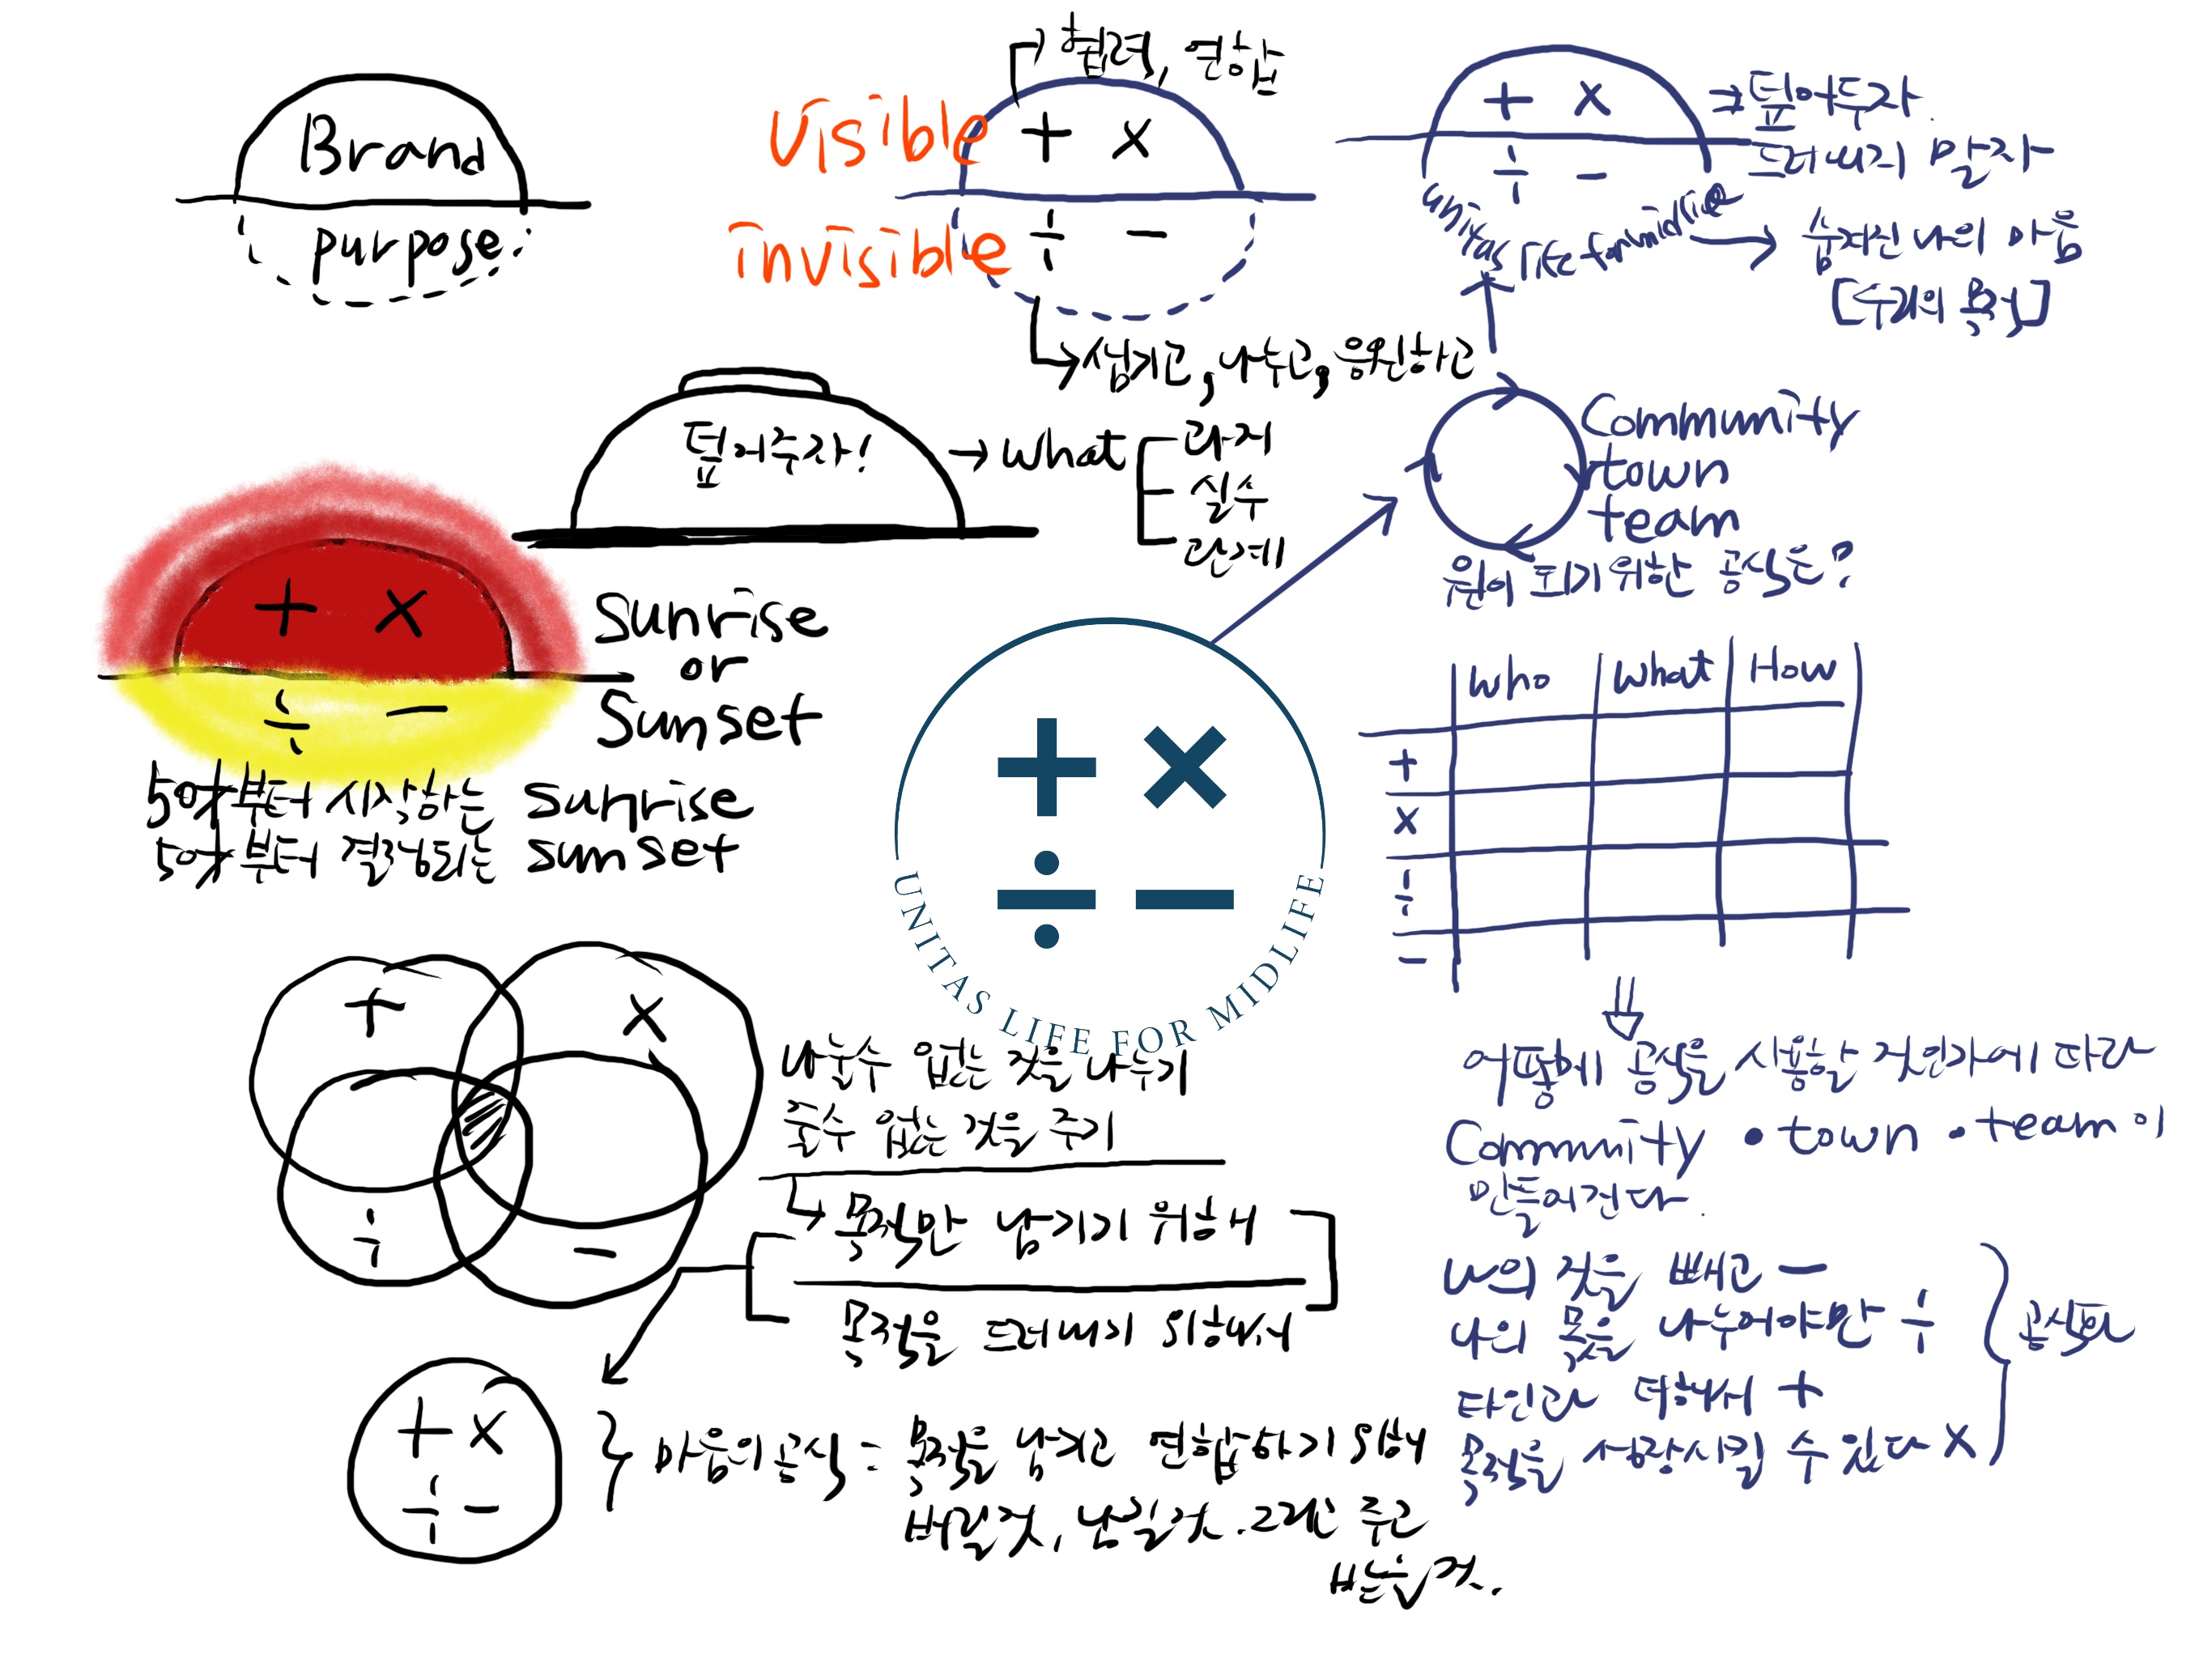 Brand
purpose
협력, 연합
visible
+ ×
invisible
÷ −
섬기고, 나누고, 응원하고
+ ×
÷ −
unitas life for midlife
덮어두자.
드러내지 말자
숨겨진 나의 마음
[우리의 목적]
덮어주자!
what
과거
실수
관계
+ ×
÷ −
Sunrise
or
Sunset
50대부터 시작하는 sunrise
50대부터 결정되는 sunset
Community
town
team
원이 되기 위한 공식은?
+ ×
÷ −
UNITAS LIFE FOR MIDLIFE
who what How
+
×
÷
−
어떻게 공식을 사용할 것인가에 따라
Community • town • team이
만들어진다.
나의 것을 빼고 −
나의 몫을 나누어야만 ÷
타인과 더해서 +
목적을 성장시킬 수 있다 ×
+ ×
÷ −
나눌수 없는 것을 나누기
줄수 없는 것을 주기
목적만 남기기 위해
목적을 드러내기 위해서
+ ×
÷ −
마음의 공식 : 목적을 남기고 연합하기 위해
버릴것, 남길것. 그리고 주고
받을 것.